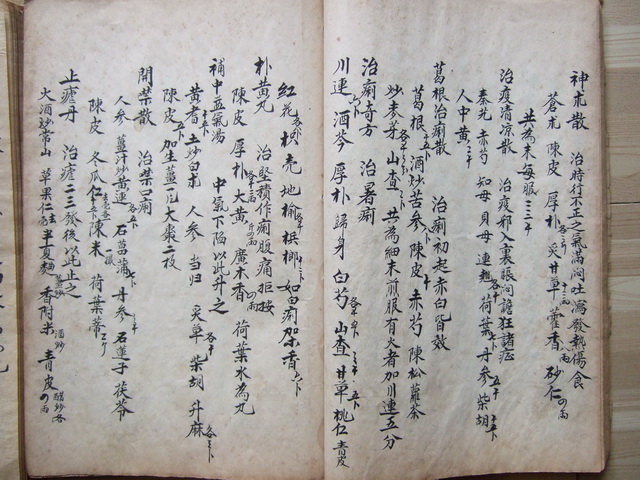 神朮散　治時行不正之氣滿悶吐瀉發熱傷食
蒼朮　陳皮　厚朴　炙甘草　藿香　砂仁
共為末每服三錢
治疫清凉散　治疫邪入裏脹悶譫狂諸症
秦艽　赤芍　知母　貝母　連翹　荷葉　丹參　柴胡
人中黃
葛根治痢散　治痢初起赤白皆效
葛根　酒炒苦參　陳皮　赤芍　陳松蘿茶
炒麥芽　山查　共為細末煎服有火者加川連五分
治痢奇方　治暑痢
川連　酒芩　厚朴　歸身　白芍　山查　甘草　桃仁　青皮
紅花　枳壳　地榆　檳榔　如白痢　香
朴黃丸　治堅積作痢腹痛拒按
陳皮　厚朴　大黃　廣木香　荷葉水為丸
補中益氣湯　中氣下陷以此升之
黃耆　土炒白朮　人參　当归　炙草　柴胡　升麻
陳皮　加生薑一片大棗二枚
開禁散　治禁口痢
人參　薑汁炒黃連　石菖蒲　丹參　石蓮子　茯苓
陳皮　冬瓜仁　陳米　荷葉蒂
止瘧丹　治瘧二三發後以此止之
火酒炒常山　草果仁　半夏麯　香附米　青皮